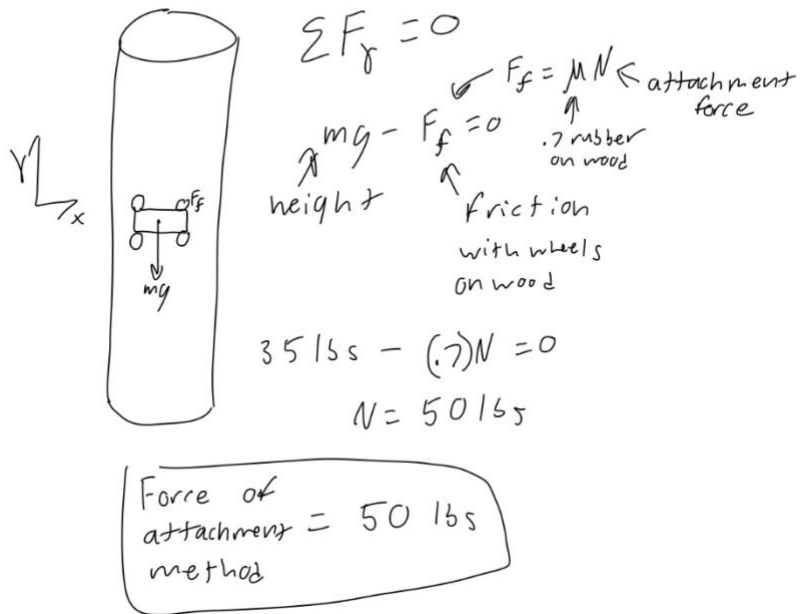 ΣF_y = 0
F_f = μN ← attachment
force
.7 rubber
on wood
mg - F_f = 0
height
friction
with wheels
on wood
Y
x
F_f
mg
35 lbs - (.7)N = 0
N = 50 lbs
Force of
attachment = 50 lbs
method